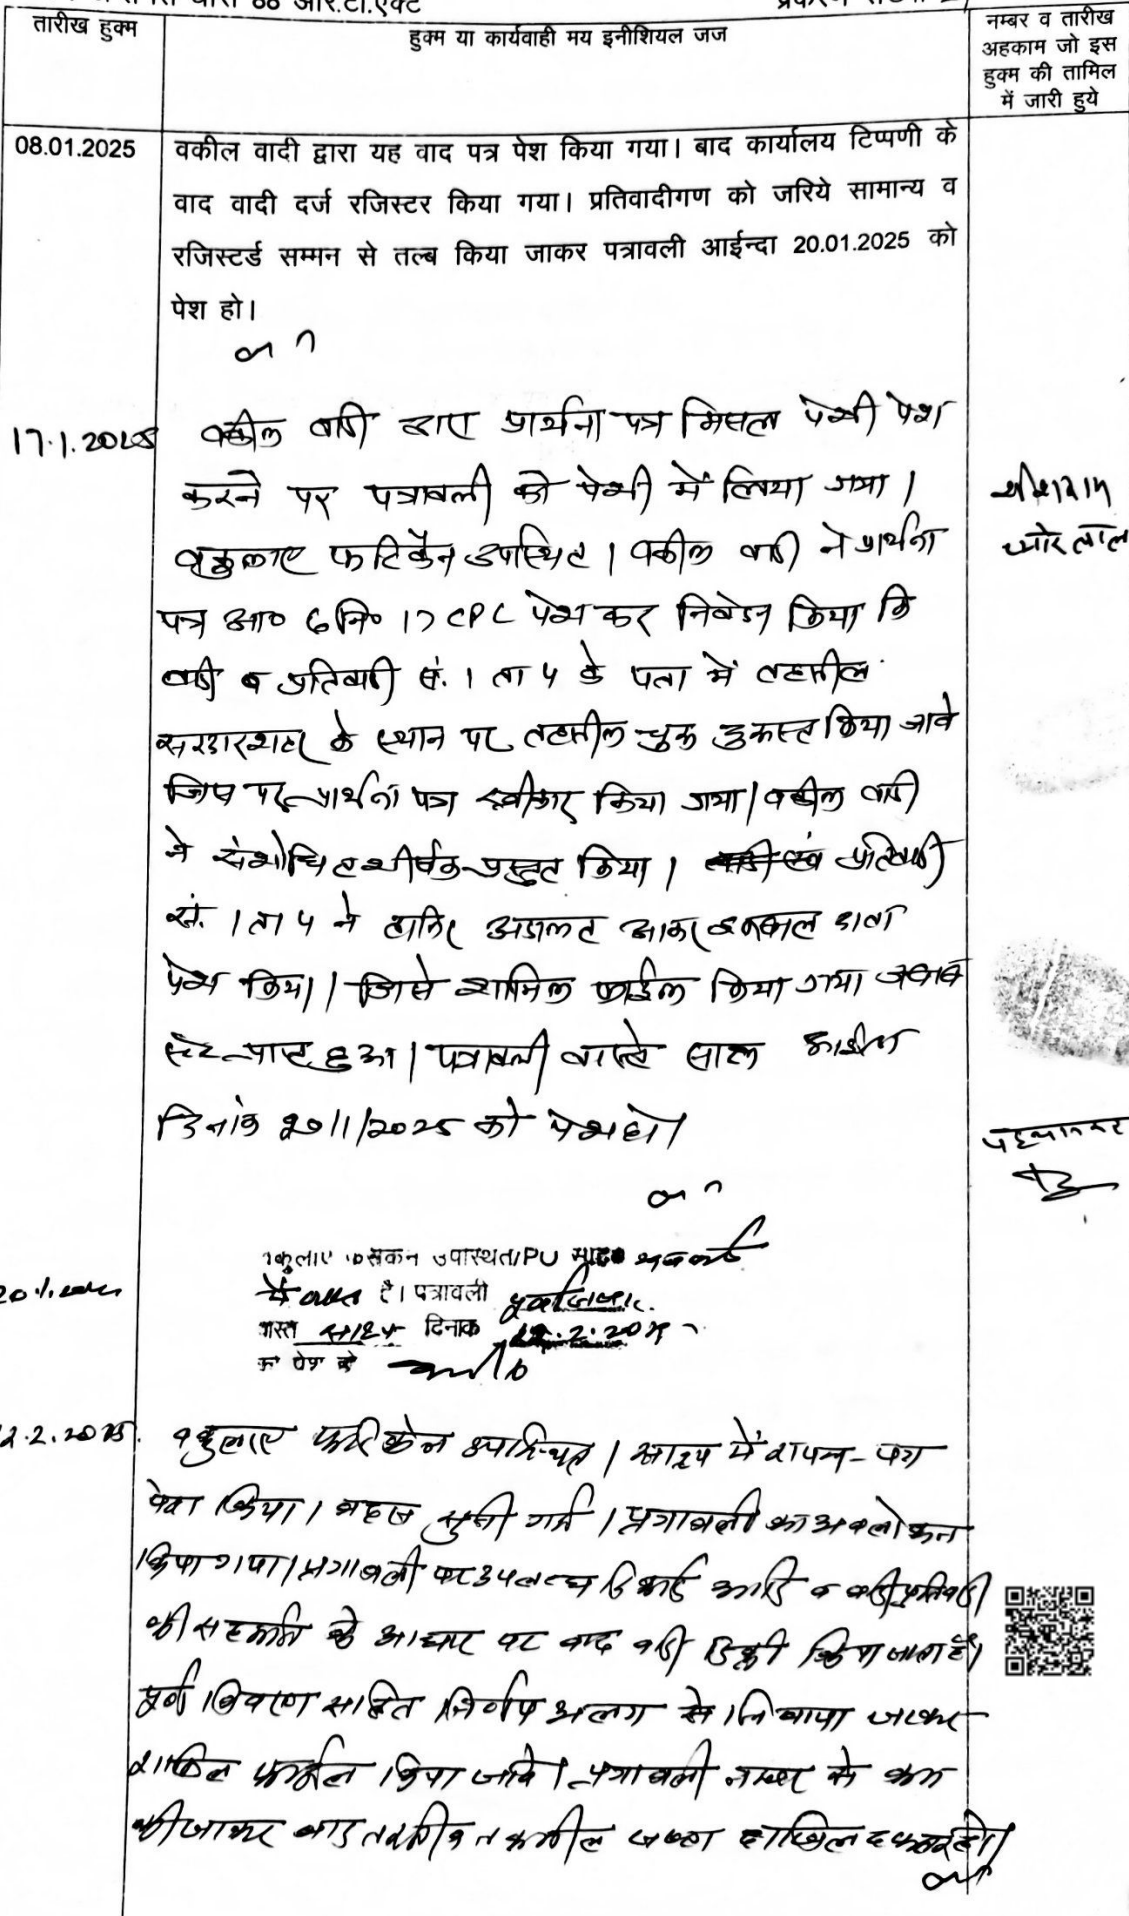 धारा 88 आर.टी.एक्ट
तारीख हुक्म
हुक्म या कार्यवाही मय इनीशियल जज
नम्बर व तारीख
अहकाम जो इस
हुक्म की तामिल
में जारी हुये
08.01.2025
वकील वादी द्वारा यह वाद पत्र पेश किया गया। बाद कार्यालय टिप्पणी के
वाद वादी दर्ज रजिस्टर किया गया। प्रतिवादीगण को जरिये सामान्य व
रजिस्टर्ड सम्मन से तल्ब किया जाकर पत्रावली आईन्दा 20.01.2025 को
पेश हो।
17.1.2025
वकील वादी द्वारा प्रार्थना पत्र मिसल पेशी पेश
करने पर पत्रावली को पेशी में लिया गया।
वकुलाए फरिकेन उपस्थित। वकील वादी ने प्रार्थना
पत्र आ० 6 नि० 17 CPC पेश कर निवेदन किया कि
वादी व प्रतिवादी सं. 1 ता 5 के पता में तहसील
सरदारशहर के स्थान पर तहसील चुरू दुरूस्त किया जावे
जिस पर प्रार्थना पत्र स्वीकार किया गया। वकील वादी
ने संशोधित शीर्षक प्रस्तुत किया। प्रतिवादी
सं. 1 ता 5 ने हाजिर अदालत आकर इकबाल दावा
पेश किया। जिसे शामिल फाईल किया गया जवाब
पत्रावली वास्ते
दिनांक 20/1/2025 को पेश हो।
उपस्थित/PU
है। पत्रावली
दिनांक 12.2.2025
12.2.2025.
वकुलाए फरिकेन उपस्थित। साक्ष्य में शपथ-पत्र
पेश किया। बहस सुनी गई। पत्रावली का अवलोकन
किया गया। पत्रावली पर उपलब्ध रिकार्ड आदि व वादी प्रतिवादी
की सहमति के आधार पर वाद वादी डिक्री किया जाता है।
पूर्ण विवरण सहित निर्णय अलग से लिखाया जाकर
शामिल फाईल किया जावे। पत्रावली नम्बर से कम
की जाकर बाद तकमील दाखिल दफ्तर हो।